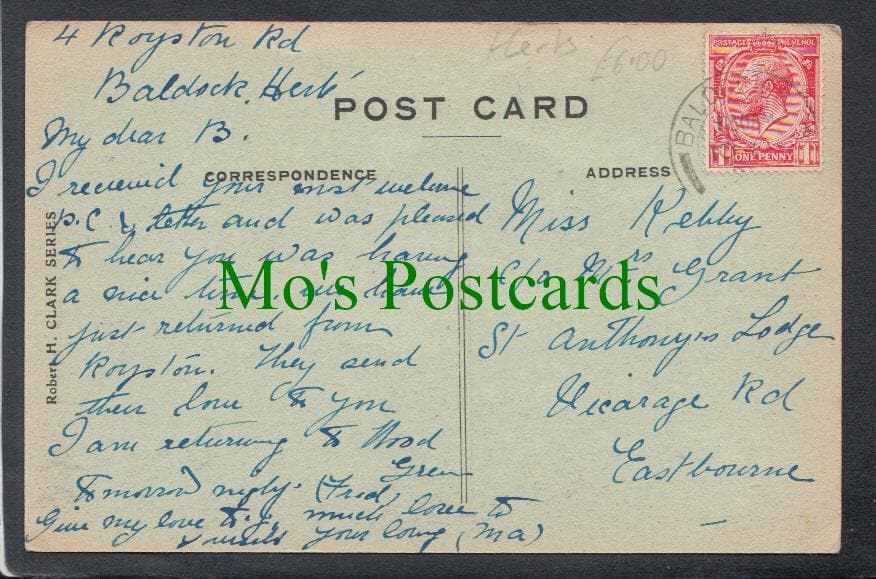 4 Royston Rd
Baldock, Herts
Herts £6.00
POSTAGE REVENUE
ONE PENNY
BALD
POST CARD
My dear B.
CORRESPONDENCE
ADDRESS
I received your most welcome
p.c. & letter and was pleased
to hear you was having
a nice time, we have
just returned from
Royston. They send
their love to you
I am returning to Wood
Green
tomorrow night (Fred)
Give my love to much love to
your loving (Ma)
Miss Kebby
c/o Mrs Grant
St Anthonys Lodge
Vicarage Rd
Eastbourne
Robert H. CLARK SERIES
Mo's Postcards